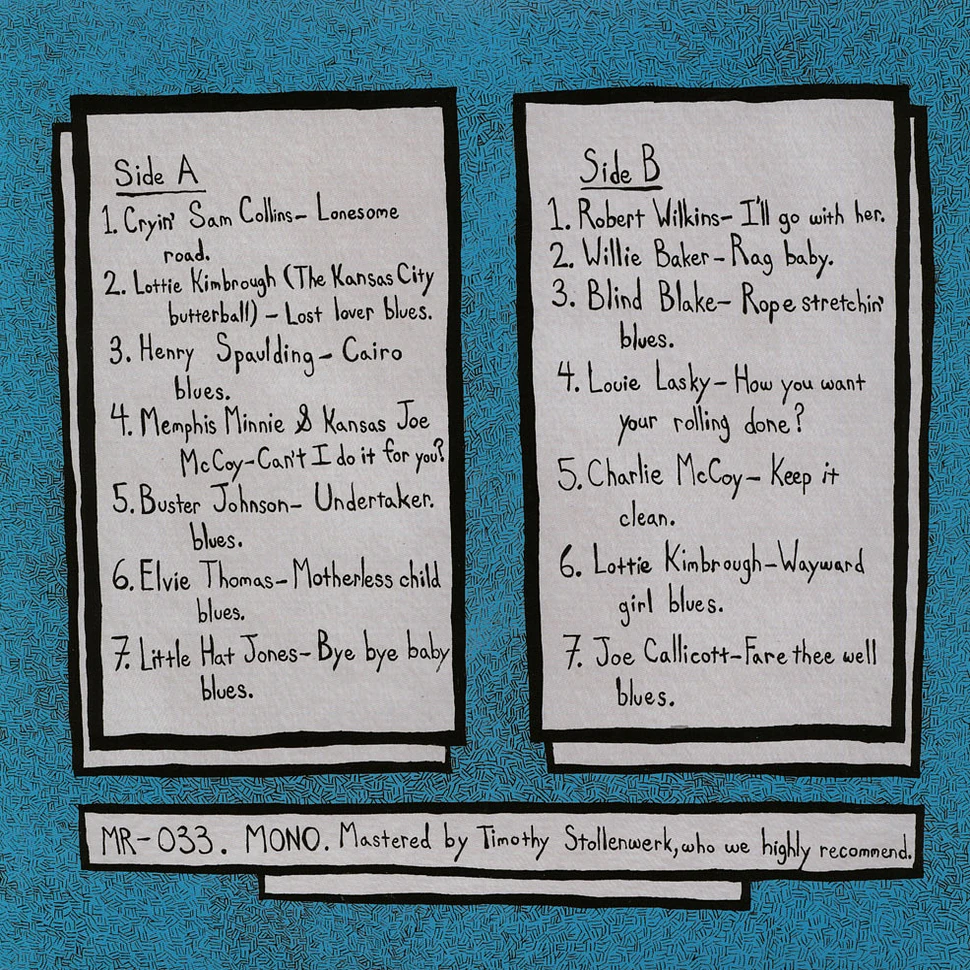 Side A
1. Cryin' Sam Collins- Lonesome
road.
2. Lottie Kimbrough (The Kansas City
butterball) - Lost lover blues.
3. Henry Spaulding- Cairo
blues.
4. Memphis Minnie & Kansas Joe
McCoy-Can't I do it for you?
5. Buster Johnson- Undertaker.
blues.
6. Elvie Thomas- Motherless child
blues.
7. Little Hat Jones- Bye bye baby
blues.
Side B
1. Robert Wilkins- I'll go with her.
2. Willie Baker-Rag baby.
3. Blind Blake- Rope stretchin'
blues.
4. Louie Lasky- How you want
your rolling done?
5. Charlie McCoy- Keep it
clean.
6. Lottie Kimbrough-Wayward
girl blues.
7. Joe Callicott-Fare thee well
blues.
MR-033. MONO. Mastered by Timothy Stollenwerk, who we highly recommend.